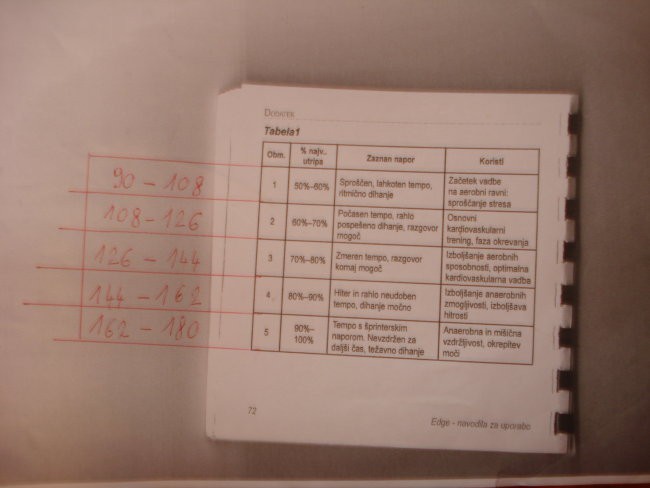 Dodatek
Tabela1
Obm. % najv. utripa Zaznan napor Koristi
90 – 108 1 50%–60% Sproščen, lahkoten tempo, ritmično dihanje Začetek vadbe na aerobni ravni: sproščanje stresa
108 – 126 2 60%–70% Počasen tempo, rahlo pospešeno dihanje, razgovor mogoč Osnovni kardiovaskularni trening, faza okrevanja
126 – 144 3 70%–80% Zmeren tempo, razgovor komaj mogoč Izboljšanje aerobnih sposobnosti, optimalna kardiovaskularna vadba
144 – 162 4 80%–90% Hiter in rahlo neudoben tempo, dihanje močno Izboljšanje anaerobnih zmogljivosti, izboljšava hitrosti
162 – 180 5 90%–100% Tempo s šprinterskim naporom. Nevzdržen za daljši čas, težavno dihanje Anaerobna in mišična vzdržljivost, okrepitev moči
72
Edge - navodila za uporabo